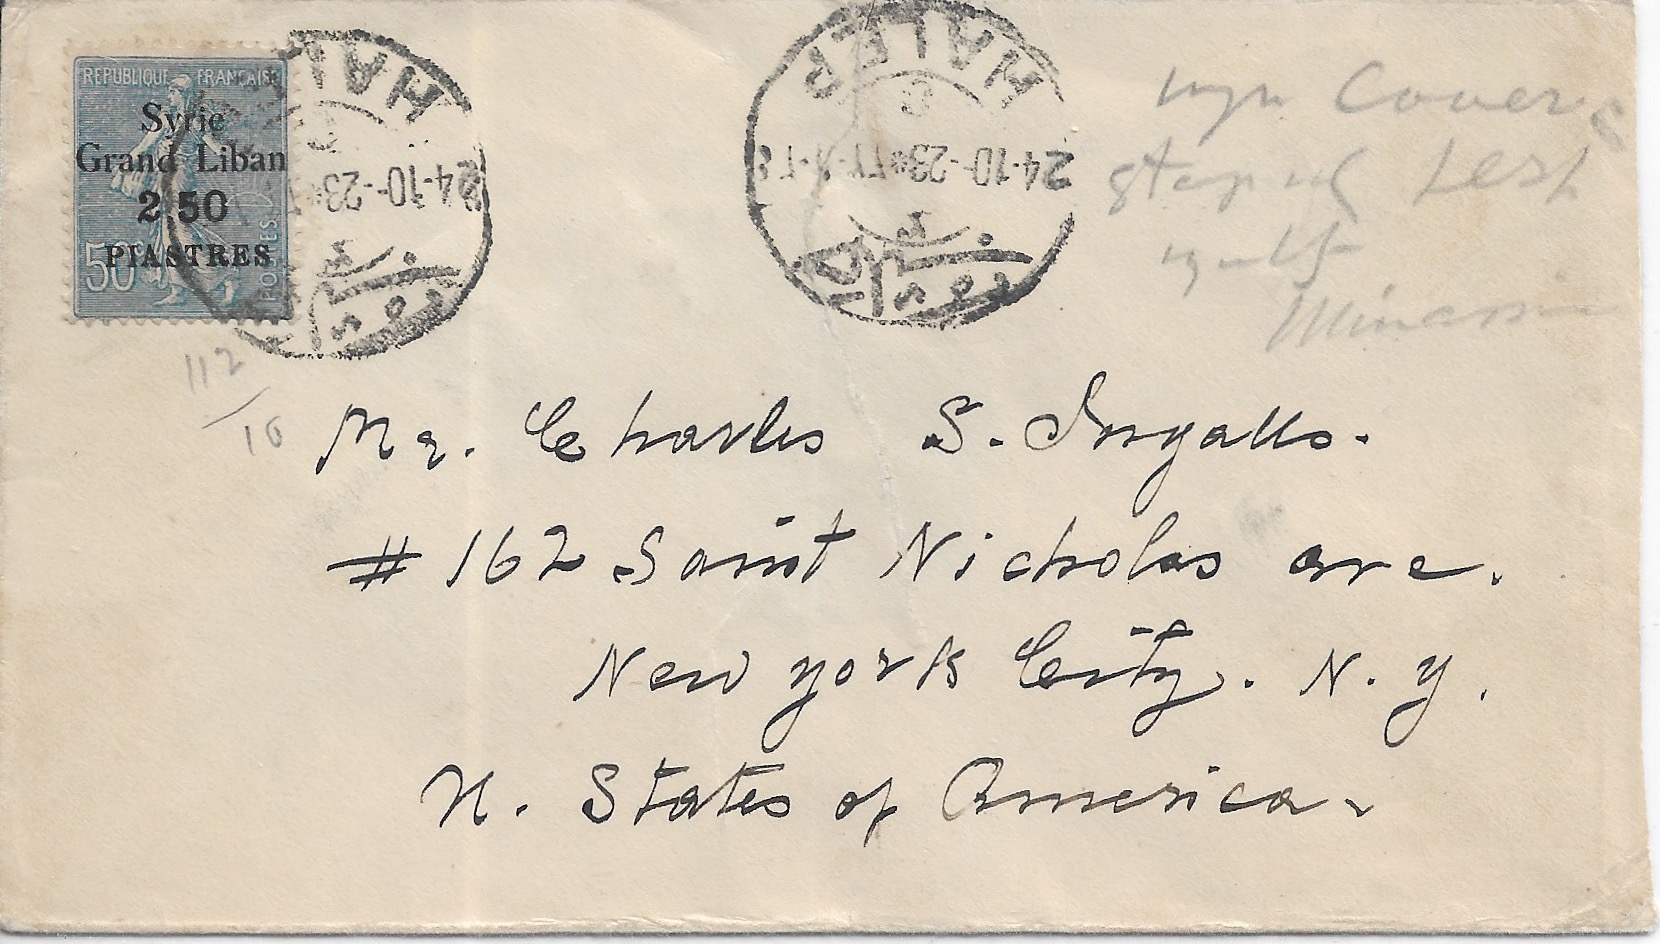 REPUBLIQUE FRANÇAISE
Syrie
Grand Liban
2.50
PIASTRES
50c
POSTES
HALEP
24-10-23
HALEP
24-10-23
Covers
Minassian
112
10
Mr. Charles S. Ingalls.
# 162 Saint Nicholas ave.
New York City. N. Y.
U. States of America.